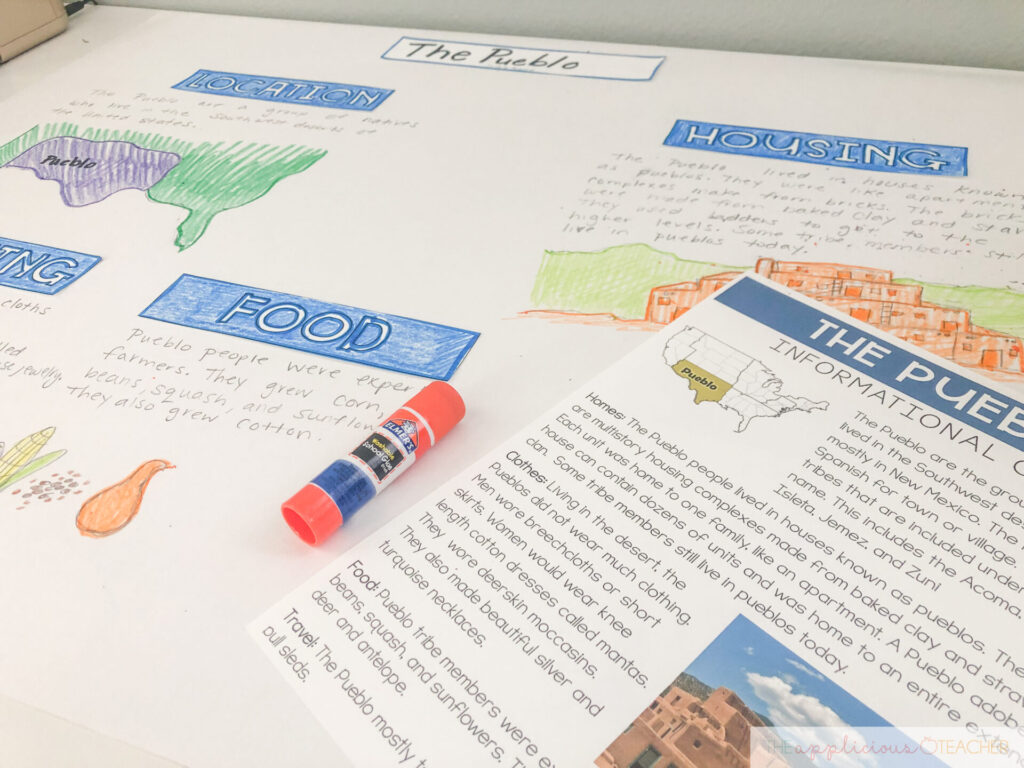 The Pueblo
LOCATION
The Pueblo are a group of natives
who live in the Southwest deserts of
the United States.
Pueblo
HOUSING
The Pueblo lived in houses known
as pueblos. They were like apartment
complexes make from bricks. The brick
were made from baked clay and straw
They used ladders to get to the
higher levels. Some tribe members still
live in pueblos today.
ING
cloths
lled
se jewelry.
FOOD
Pueblo people were exper
farmers. They grew corn,
beans, squash, and sunflow
They also grew cotton.
ELMER'S
Washable
School Glue
THE PUEB
INFORMATIONAL
Pueblo
The Pueblo are the grou
lived in the Southwest de
mostly in New Mexico. The
Spanish for town or village.
name. This includes the Acoma,
tribes that are included under
Isleta, Jemez, and Zuni
Homes: The Pueblo people lived in houses known as pueblos. The
are multistory housing complexes made from baked clay and straw
Each unit was home to one family, like an apartment. A Pueblo adob
house can contain dozens of units and was home to an entire exten
clan. Some tribe members still live in pueblos today.
Clothes: Living in the desert, the
Pueblos did not wear much clothing.
Men wore breechcloths or short
skirts. Women would wear knee
length cotton dresses called mantas.
They wore deerskin moccasins.
They also made beautiful silver and
turquoise necklaces.
Food: Pueblo tribe members were ex
beans, squash, and sunflowers. T
deer and antelope.
Travel: The Pueblo mostly t
pull sleds.
THE applicious TEACHER